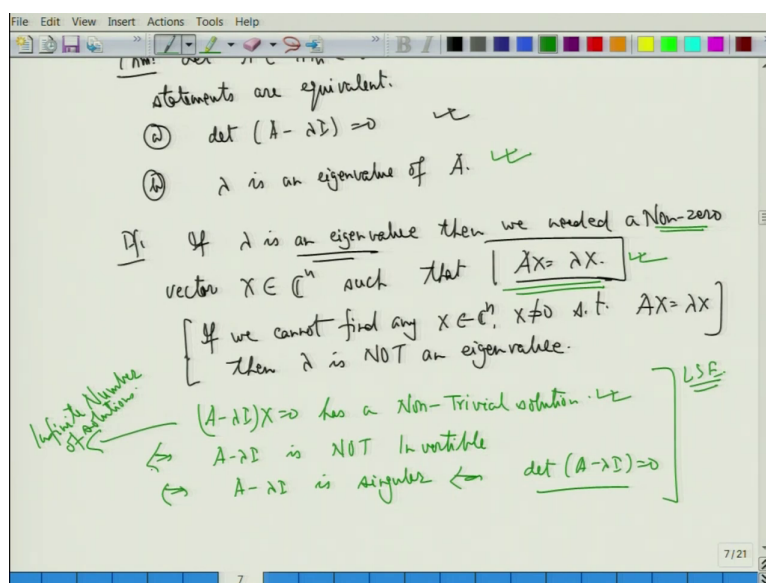 File Edit View Insert Actions Tools Help
statements are equivalent.
(a) det (A - λI) = 0
(b) λ is an eigenvalue of A.
Pf: If λ is an eigenvalue then we needed a Non-zero
vector X ∈ ℂⁿ such that AX = λX.
[If we cannot find any X ∈ ℂⁿ, X ≠ 0 s.t. AX = λX]
then λ is NOT an eigenvalue.
LSE
Infinite Number of solutions.
(A-λI)X=0 has a Non-Trivial solution.
⇔ A-λI is NOT Invertible
⇔ A-λI is singular ⇔ det (A-λI)=0
7/21
7